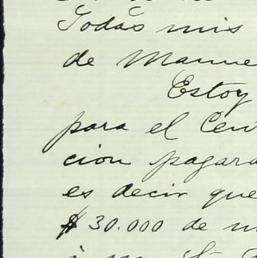 Todas mis
de
Estoy
para el Cen
cion pagara
es decir que
$30.000 de